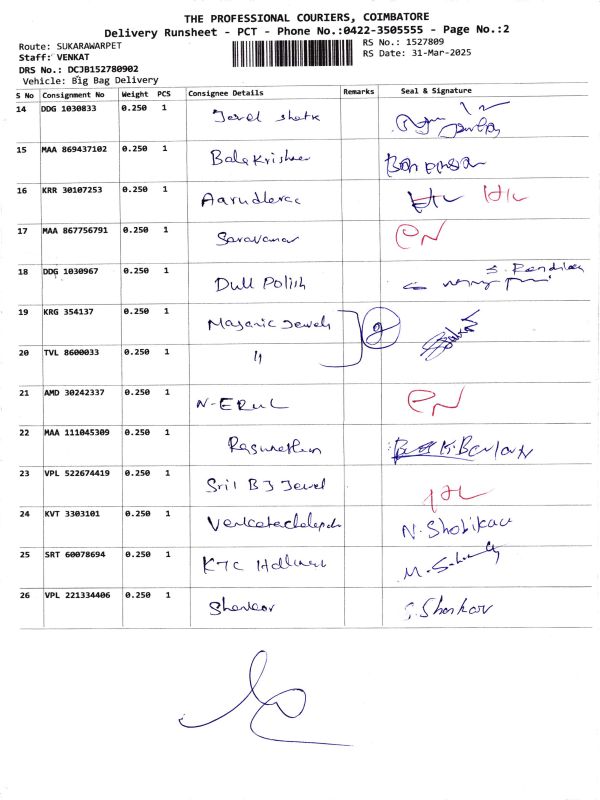 THE PROFESSIONAL COURIERS, COIMBATORE
Delivery Runsheet - PCT - Phone No.:0422-3505555 - Page No.:2
Route: SUKARAWARPET
RS No.: 1527809
Staff: VENKAT
RS Date: 31-Mar-2025
DRS No.: DCJB152780902
Vehicle: Big Bag Delivery
S No Consignment No Weight PCS Consignee Details Remarks Seal & Signature
14 DDG 1030833 0.250 1
15 MAA 869437102 0.250 1 Balakrishnan
16 KRR 30107253 0.250 1
17 MAA 867756791 0.250 1 Saravanan
18 DDG 1030967 0.250 1 Dull Polish
19 KRG 354137 0.250 1 Jewels 2
20 TVL 8600033 0.250 1 "
21 AMD 30242337 0.250 1
22 MAA 111045309 0.250 1
23 VPL 522674419 0.250 1 Jewel
24 KVT 3303101 0.250 1
25 SRT 60078694 0.250 1 KTC
26 VPL 221334406 0.250 1 Shankar S. Shankar